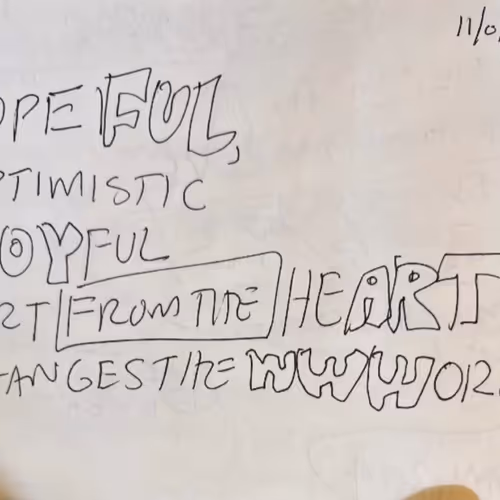 11/0
OPEFUL,
PTIMISTIC
OYFUL
RT FROM THE HEART
ANGES THE WWWOR